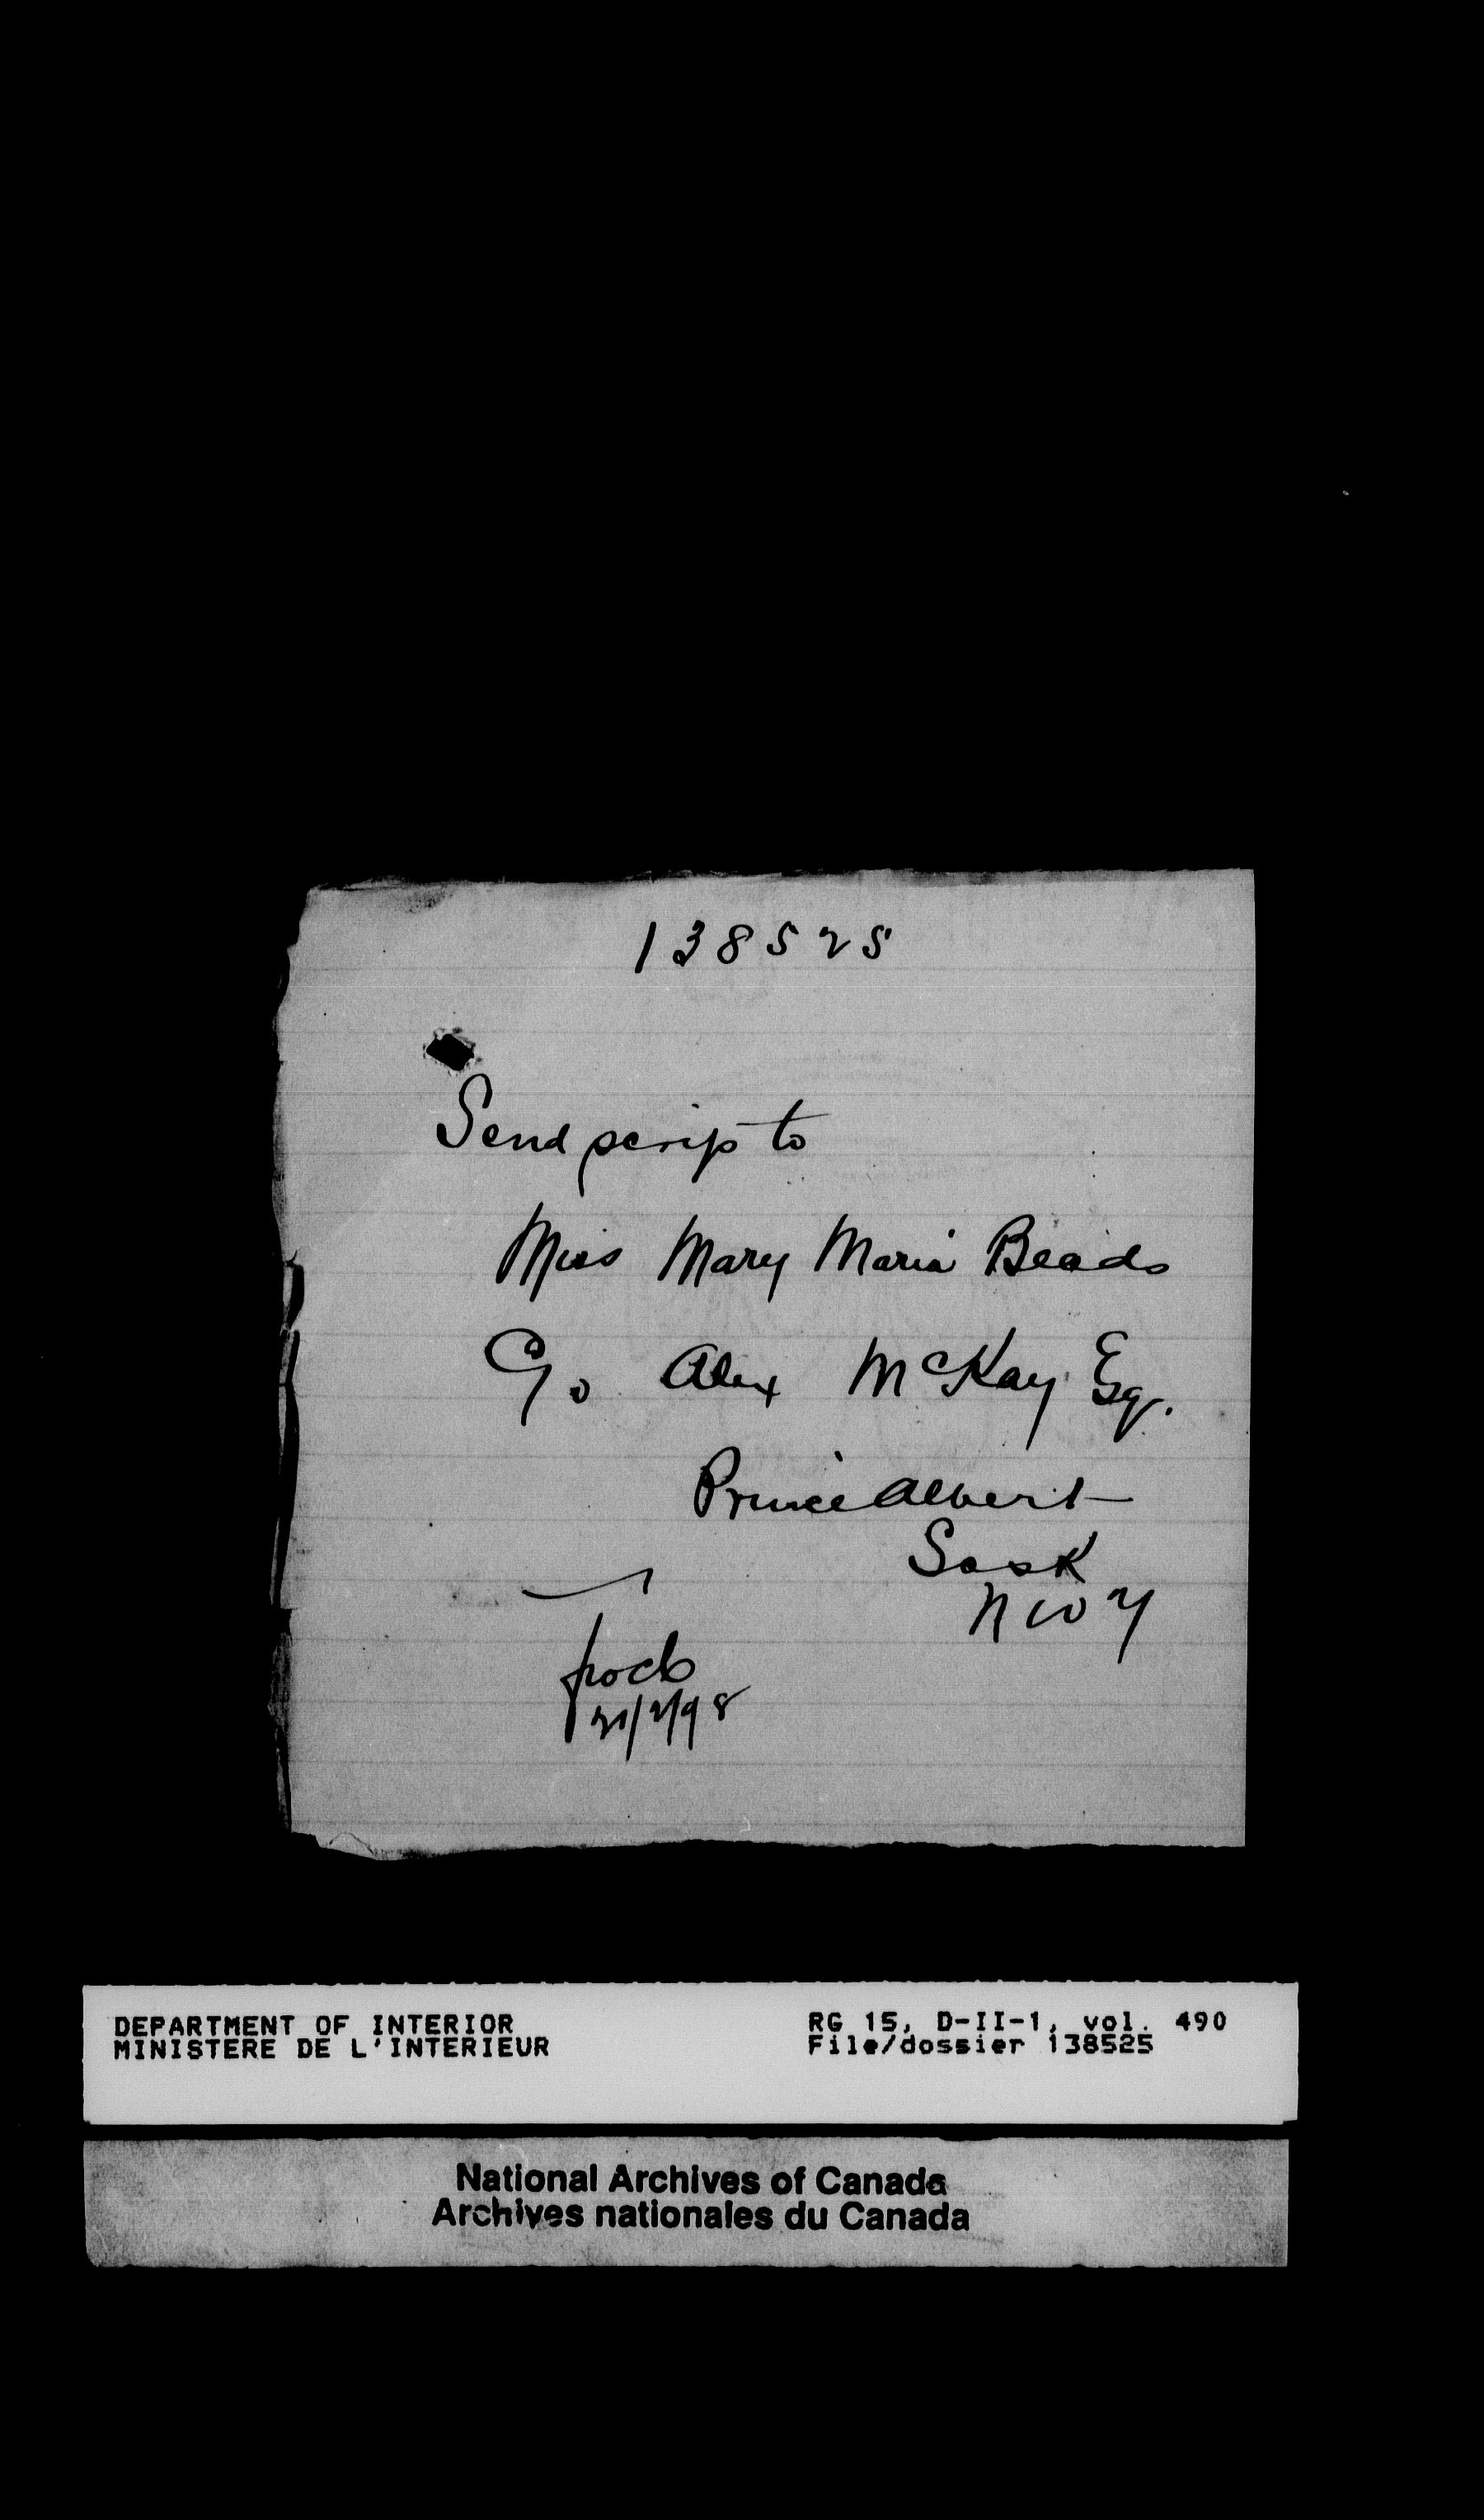 138525
Send scrip to
Miss Mary Maria Beads
C/o Alex McKay Esq.
Prince Albert
Sask
N W T
21/2/98
DEPARTMENT OF INTERIOR RG 15, D-II-1, vol. 490
MINISTERE DE L'INTERIEUR File/dossier 138525
National Archives of Canada
Archives nationales du Canada